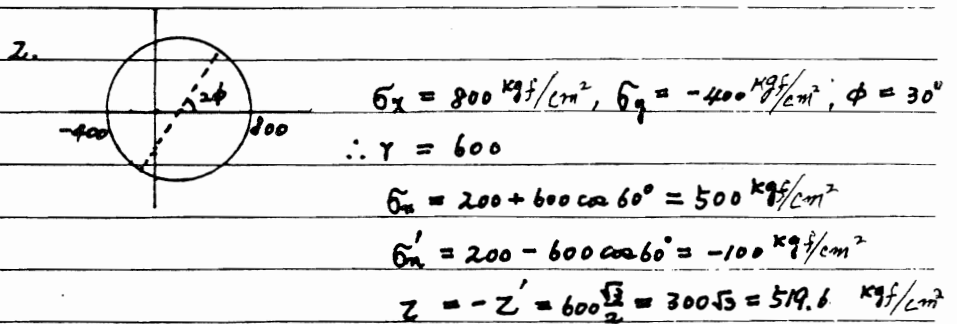 2.
2φ
-400 800
σx = 800 kgf/cm², σy = -400 kgf/cm², φ = 30°
∴ r = 600
σn = 200 + 600 cos 60° = 500 kgf/cm²
σn' = 200 - 600 cos 60° = -100 kgf/cm²
τ = -τ' = 600 √3/2 = 300√3 = 519.6 kgf/cm²